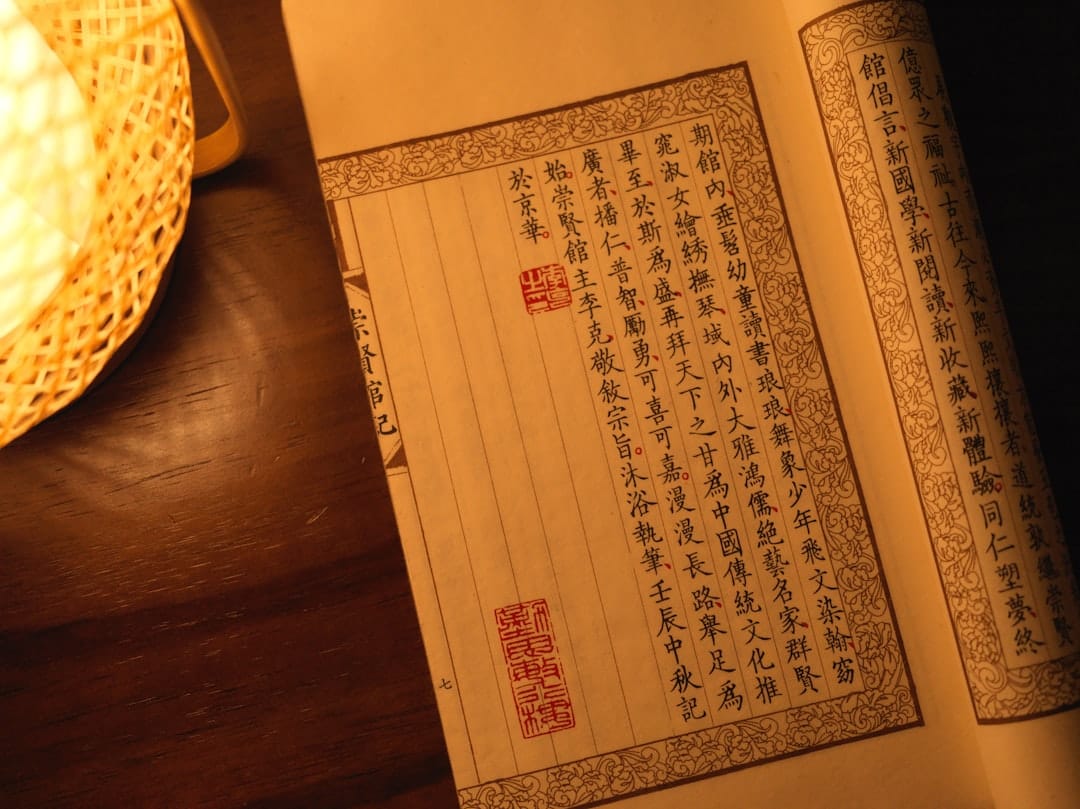 億眾之福祉古往今來熙熙攘攘者道統敦繼崇賢
館倡言、新國學、新閱讀、新收藏、新體驗。同仁塑夢、終
期館內、垂髫幼童讀書琅琅、舞象少年飛文染翰、窈
窕淑女繪綉撫琴、域內外大雅鴻儒、絕藝名家、群賢
畢至、於斯爲盛、再拜天下之甘爲中國傳統文化推
廣者、播仁、普智、勵勇、可喜可嘉。漫漫長路、舉足爲
始。崇賢館主李克、敬敘宗旨。沐浴執筆、壬辰中秋記
於京華。
崇賢館記
七